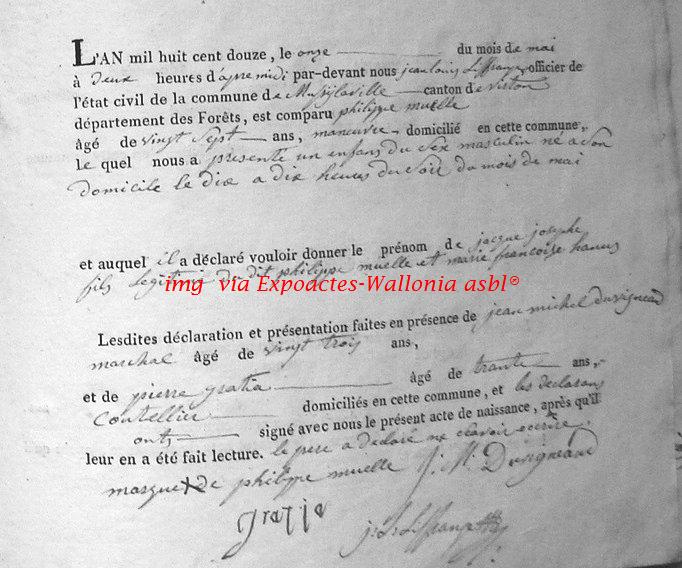 L'AN mil huit cent douze, le onze du mois de mai
à deux heures d'apremidi par-devant nous jean louis officier de
l'état civil de la commune de Mussylaville canton de virton
département des Forêts, est comparu philippe muelle
âgé de vingt sept ans, maneuvre domicilié en cette commune,
Le quel nous a presenté un enfans du sex masculin né a son
domicile le dix a dix heures du soir du mois de mai
et auquel il a déclaré vouloir donner le prénom de jacque josephe
fils legiti du dit philippe muelle et marie francoise hanus
img via Expoactes-Wallonia asbl®
Lesdites déclaration et présentation faites en présence de jean michel duvigneaud
marchal âgé de vingt trois ans,
et de pierre gratia âgé de trante ans,
Coutellier domiciliés en cette commune, et les declarans
ont, signé avec nous le présent acte de naissance, après qu'il
leur en a été fait lecture. le pere a declaré ne savoir ecrire.
marque X de philippe muelle J. M. Duvigneaud